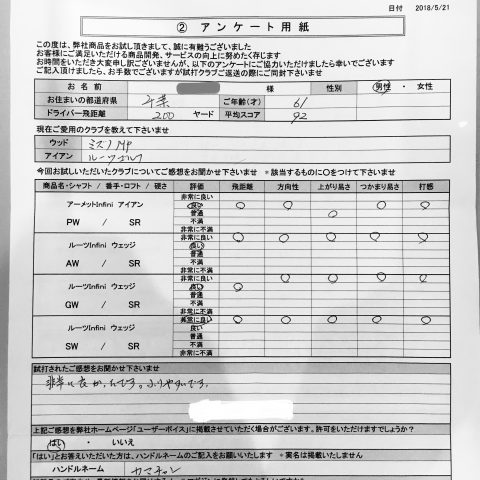 日付 2018/5/21
② アンケート用紙
この度は、弊社商品をお試し頂きまして、誠に有難うございました
お客様にご満足いただける商品開発、サービスの向上に努めたく存じます
お時間をいただき大変申し訳ございませんが、以下のアンケートにご協力いただけましたら幸いでございます
ご記入頂けましたら、お手数でございますが試打クラブご返送の際にご同封下さいませ
お 名 前 様 性別 男性 ・ 女性
お住まいの都道府県 千葉 ご年齢(才) 61
ドライバー飛距離 200 ヤード 平均スコア 92
現在ご愛用のクラブを教えて下さいませ
ウッド ミズノMP
アイアン ルーツゴルフ
今回お試しいただいたクラブについてご感想をお聞かせ下さいませ *該当するものに〇をつけて下さいませ
商品名・シャフト / 番手・ロフト / 硬さ 評価 飛距離 方向性 上がり易さ つかまり易さ 打感
アーメットInfini アイアン
PW / SR
非常に良い
良い
普通
不満
非常に不満
ルーツInfini ウェッジ
AW / SR
非常に良い
良い
普通
不満
非常に不満
ルーツInfini ウェッジ
GW / SR
非常に良い
良い
普通
不満
非常に不満
ルーツInfini ウェッジ
SW / SR
非常に良い
良い
普通
不満
非常に不満
試打されたご感想をお聞かせ下さいませ
非常に良かったです。ふりやすいです。
上記ご感想を弊社ホームページ「ユーザーボイス」に掲載させていただく場合がございます。許可をいただけますでしょうか?
はい ・ いいえ
「はい」とお答えいただいた方は、ハンドルネームのご記入をお願いいたします *実名は掲載いたしません
ハンドルネーム ヤマチャン